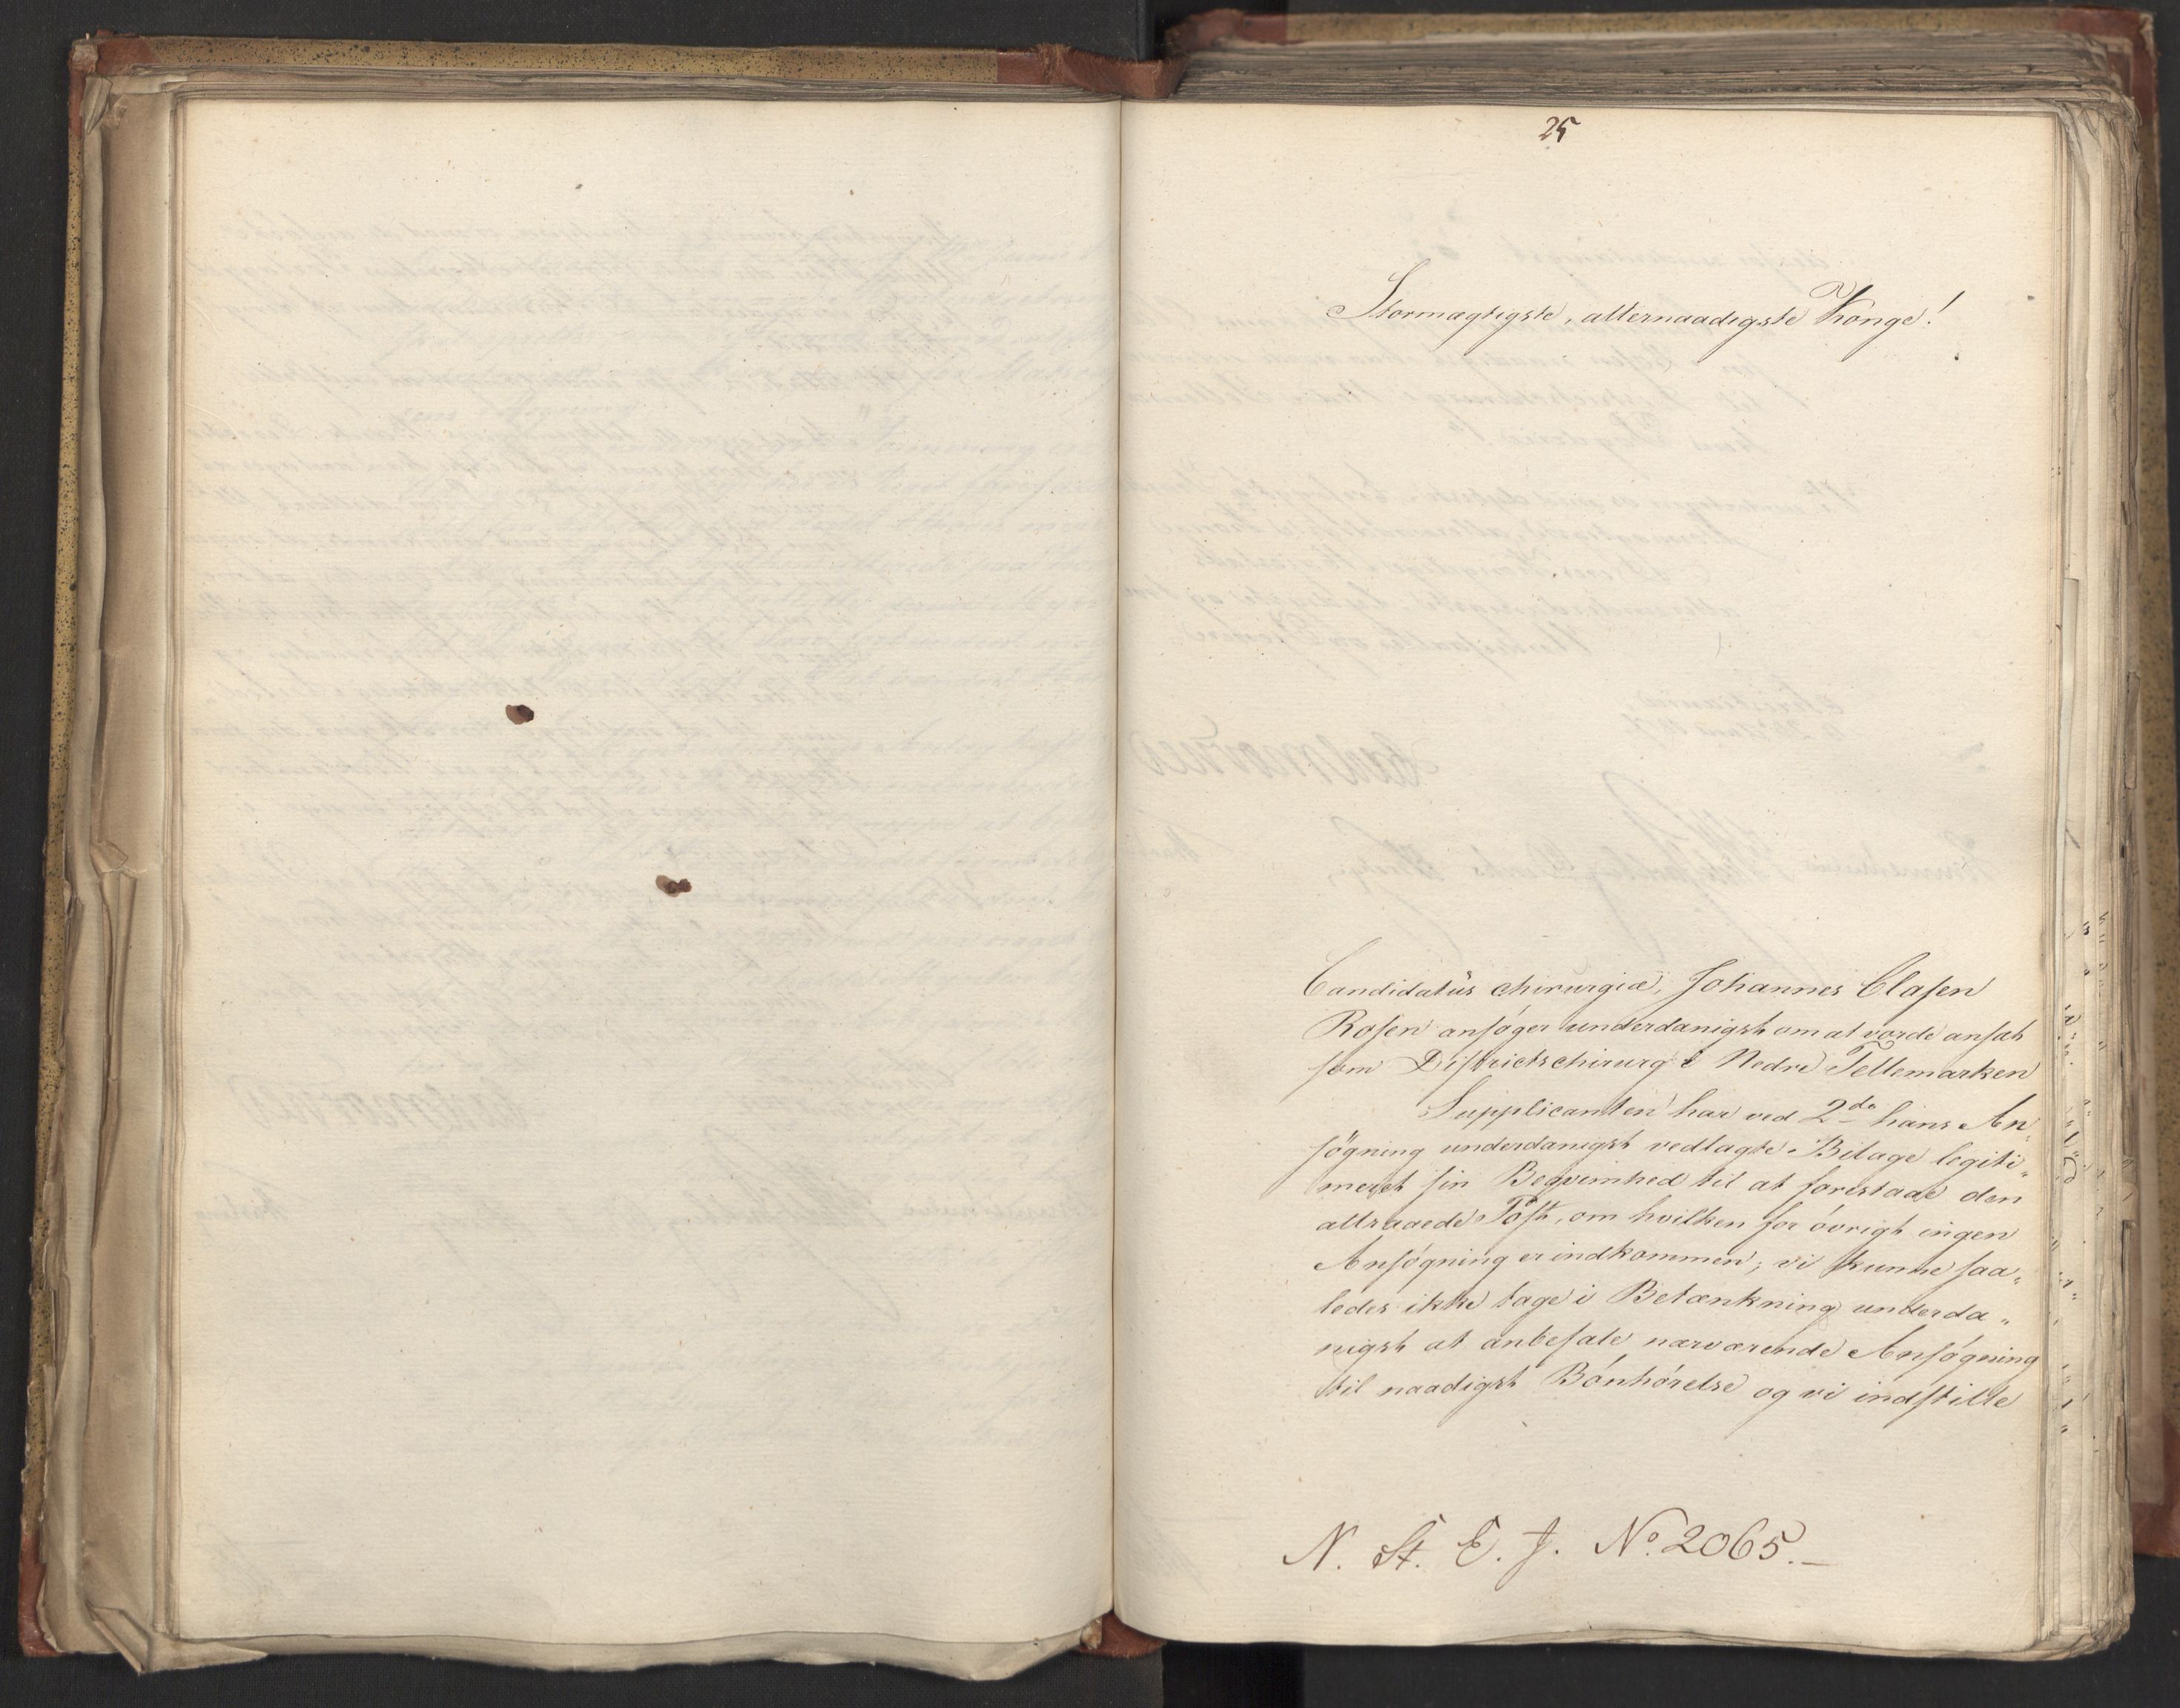 25
Stormægtigste, allernaadigste Konge!
Candidatus chirurgiæ, Johannes Clasen
Rosen ansøger underdanigst om at vorde ansat
som Districtschirurg i Nedre Tellemarken
Supplicanten har ved 2de hans An„
søgning underdanigst vedlagte Bilage legiti„
meret sin Beqvemhed til at forestaae den
attraaede Post, om hvilken for øvrigt ingen
Ansøgning er indkommen; vi kunne saa„
ledes ikke tage i Betænkning underda„
nigst at anbefale nærværende Ansøgning
til naadigst Bönhörelse og vi indstille
N. St. E. J. No. 2065.—